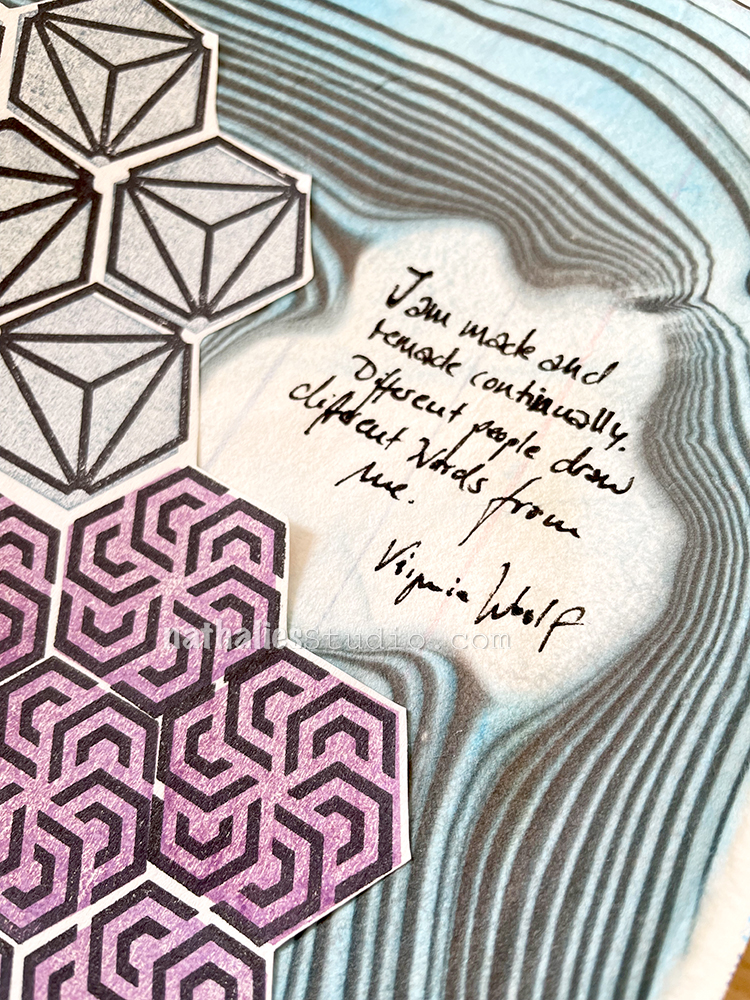 I am made and
remade continually.
Different people draw
different Words from
me.
Virginia Woolf
nathaliesstudio.com